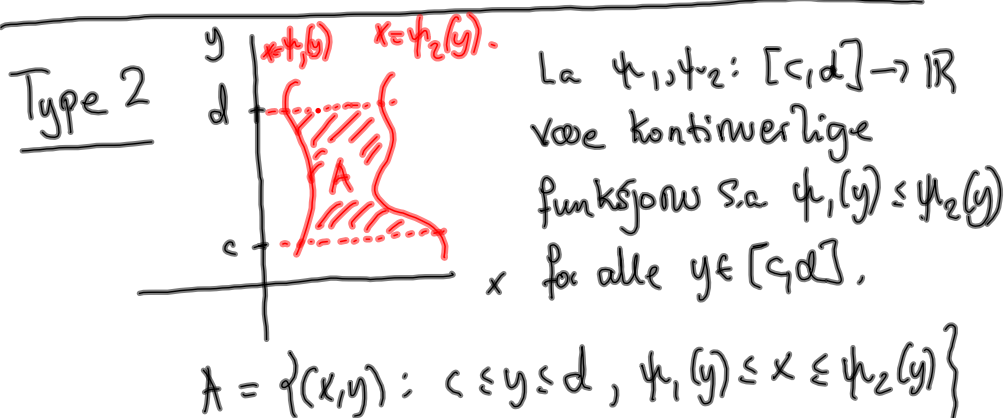 Type 2
y
d
c
x
x=ψ₁(y)
x=ψ₂(y).
A
La ψ₁,ψ₂: [c,d]→ℝ
være kontinuerlige
funksjoner s.a ψ₁(y) ≤ ψ₂(y)
for alle y∈[c,d].
A = {(x,y): c ≤ y ≤ d, ψ₁(y) ≤ x ≤ ψ₂(y)}